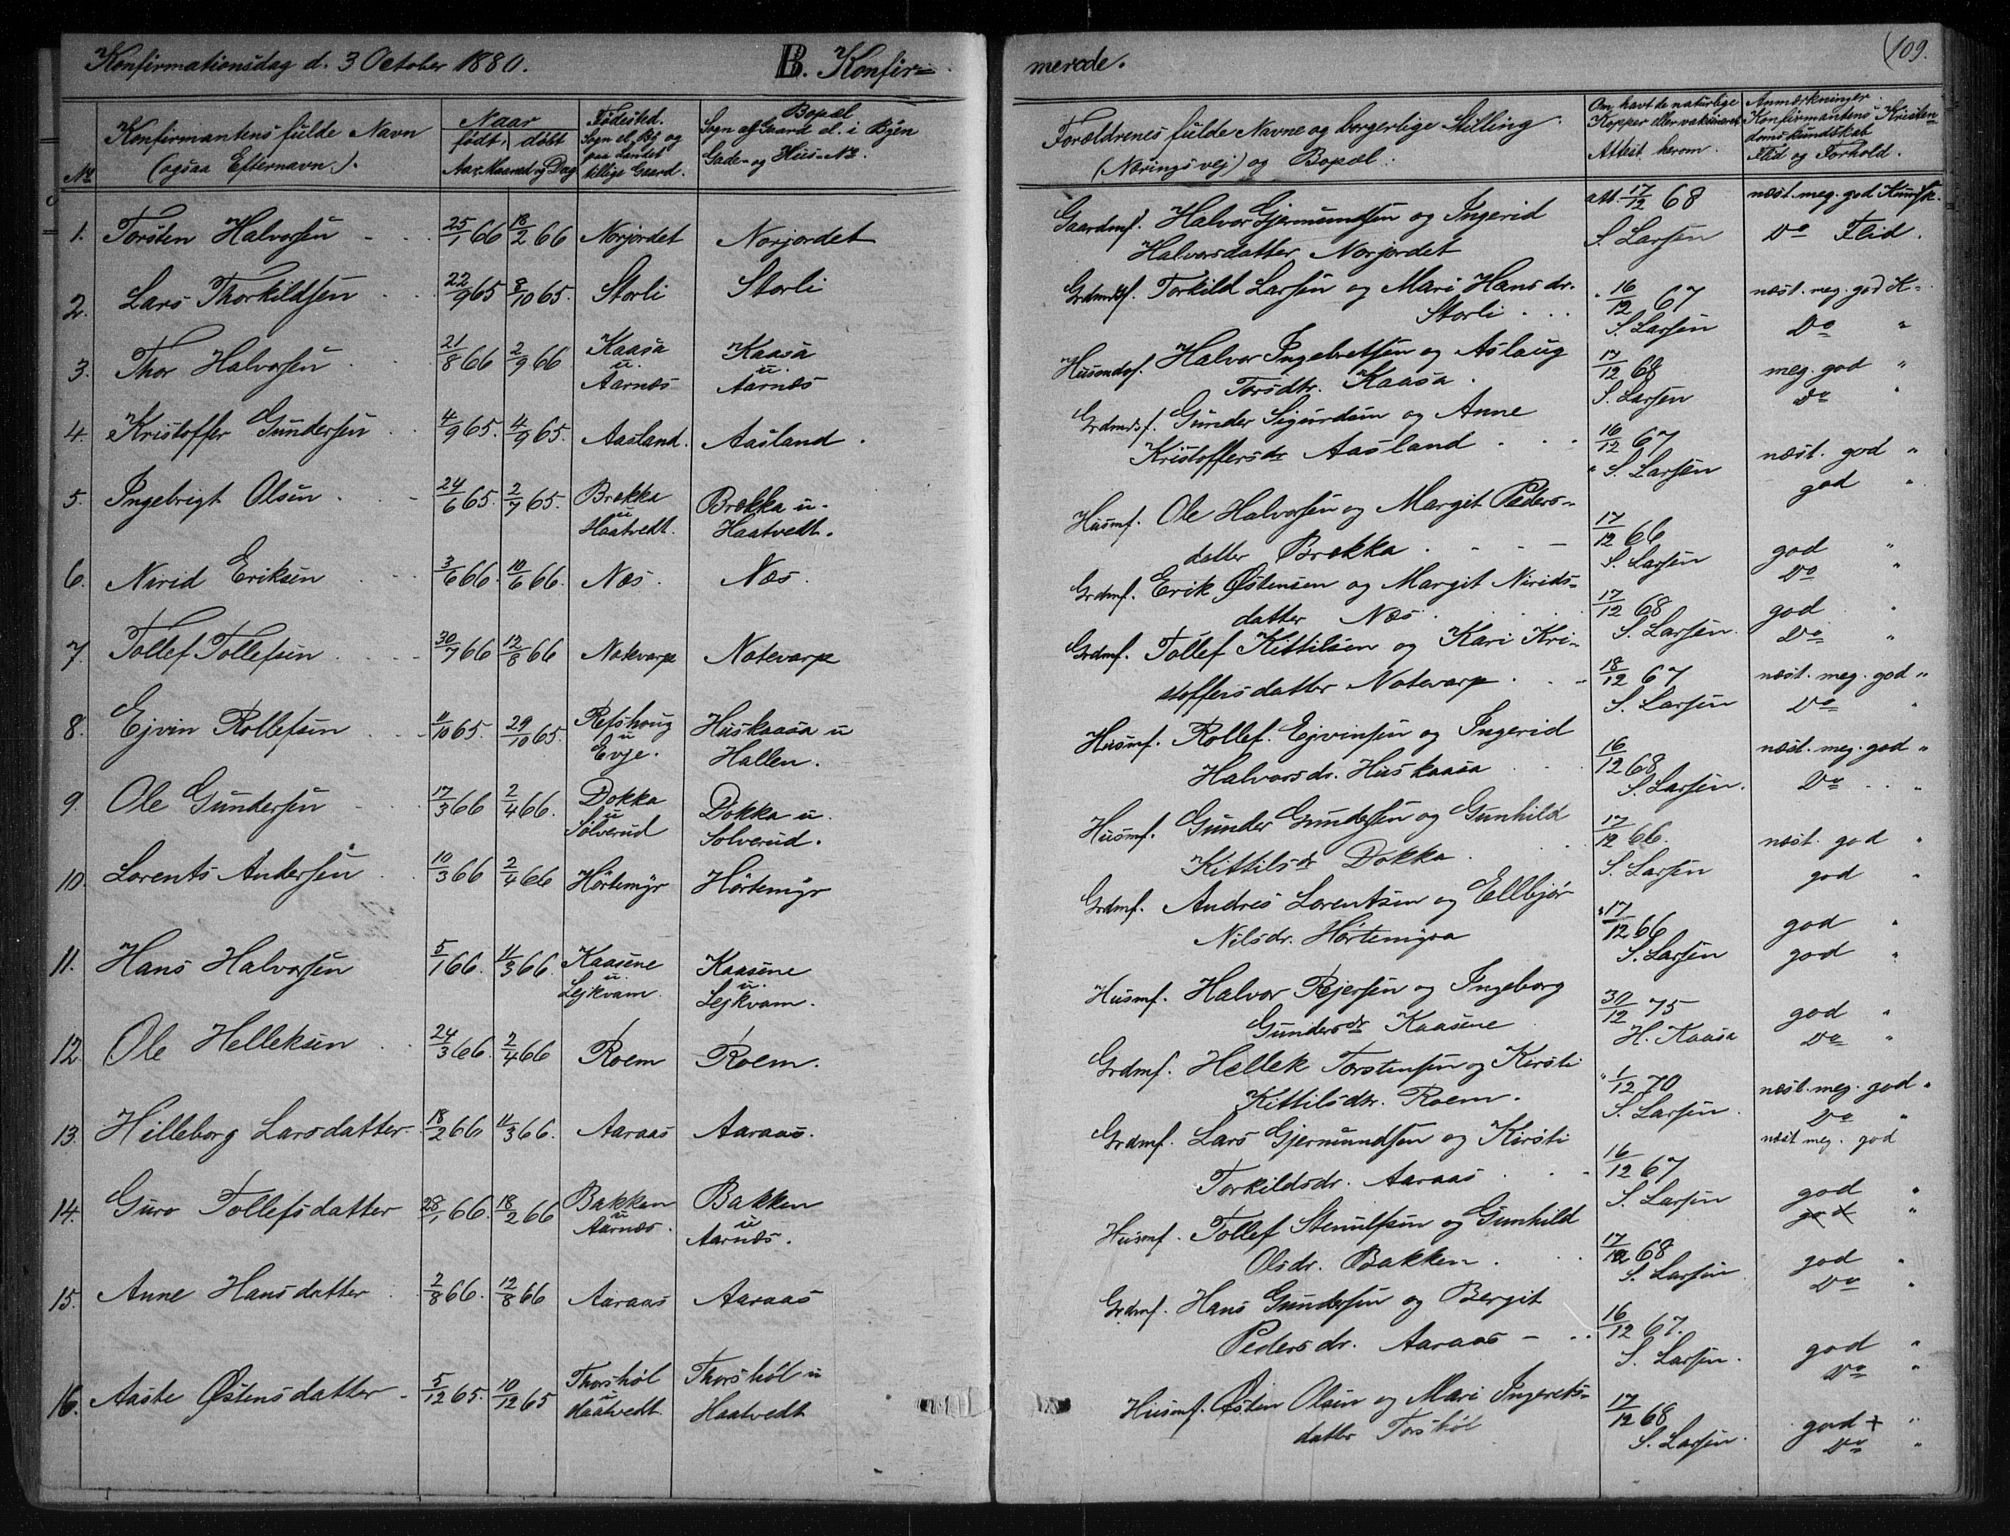 Konfirmationsdag d. 3 October 1880. B. Konfir=
merede. (109.
No
Konfirmantens fulde Navn
(ogsaa Efternavn).
Naar
født, døbt
Aar, Maaned og Dag
Fødested.
Sogn el. By og
paa Landet
tillige Gaard.
Bopæl
Sogn og Gaard el. i Byen
Gade- og Hus-No.
Forældrenes fulde Navne og borgerlige Stilling
(Næringsvej) og Bopæl:
Om havt de naturlige
Kopper eller vaksineret
Attest herom.
Anmærkninger.
Konfirmantens Kristen-
domskundskab
Flid og Forhold.
1. Torsten Halvorsen 25/1 66 18/2 66 Norjordet Norjordet
Gaardmf. Halvor Gjermundsen og Ingerid
Halvorsdatter Norjordet
att. 17/12 68
S. Larsen
næst. meg. god Kundsk.
Do Flid.
2. Lars Thorkildsen 22/9 65 8/10 65. Storli Storli
Grdmdsf. Torkild Larsen og Mari Hansdr.
Storli . . .
" 16/12 67
S. Larsen
næst. meg. god K-
Do "
3. Thor Halvorsen 21/8 66 2/9 66 Kaasa
u.
Aarnæs
Kaasa
u.
Aarnæs
Husmdsf. Halvor Ingebretsen og Aslaug
Torsdtr. Kaasa.
17/12 68
S. Larsen
meg. god "
Do "
4. Kristoffer Gundersen 4/9 65. 4/9 65. Aasland. Aasland.
Grdmdsf. Gunder Sigurdsen og Anne
Kristoffersdr Aasland
16/12 67
" S. Larsen
næst. god "
god "
5. Ingebrigt Olsen 24/6 65. 2/7 65. Brækka
u
Haatvedt.
Brækka u.
Haatvedt.
Husmf. Ole Halvorsen og Margit Peders-
datter Brækka
17/12 66
S. Larsen
god "
Do "
6. Narid Eriksen 3/6 66. 10/6 66. Næs. Næs.
Grdmf. Erik Østensen og Margit Nirids-
datter Næs.
17/12 68
S. Larsen.
god "
Do "
7. Tollef Tollefsen 30/7 66 12/8 66 Notevarp Notevarp
Grdmf. Tollef Kittilsen og Kari Kri-
stoffersdatter Notevarp
18/12 67
S. Larsen
næst. meg. god "
Do "
8. Ejvin Rollefsen 11/10 65. 29/10 65. Refshoug
u
Evje.
Huskaasa u
Hallen.
Husmf. Rollef. Ejvinsen og Ingerid
Halvorsdr. Huskaasa
16/12 68
S. Larsen.
næst. meg. god "
Do "
9. Ole Gundersen 17/3 66 2/4 66. Dokka
u
Sølverud
Dokka u.
Solverud.
Husmf. Gunder Gundersen og Gunhild
Kittilsdr Dokka
17/12 66.
S. Larsen
næst. god "
god "
10. Lorents Andersen 10/3 66 2/4 66 Hörtemÿr Hörtemÿr
Grdmf. Andres Lorentsen og Ellbjør
Nilsdr. Hörtemyra
" 17/12 66
S. Larsen
god "
god "
11. Hans Halvorsen 5/1 66. 11/3 66. Kaasene
u.
Lejkvam.
Kaasene
u.
Lejkvam.
Husmf. Halvor Rejersen og Ingeborg
Gundersdr Kaasene
30/12 75
H. Kaasa
god "
Do "
12. Ole Helleksen 24/3 66. 2/4 66 Roem Roem.
Grdmf. Hellek Torstensen og Kirsti
Kittilsdtr. Roem.
" 1/12 70
S. Larsen.
næst. meg. god "
Do "
13. Helleborg Larsdatter. 18/2 66 11/3 66. Aaraas Aaraas.
Grdmf. Lars Gjermundsen og Kirsti
Torkildsdr. Aaraas
16/12 67
S. Larsen
næst meg. god
god "
14. Guro Tollefsdatter 28/1 66. 18/2 66 Bakken
u
Aarnæs.
Bakken
u
Aarnæs.
Husmf. Tollef Stenulfsen og Gunhild
Olsdr. Bakken.
17/12 68
S. Larsen
god "
god "
15. Anne Hansdatter 2/8 66. 12/8 66 Aaraas Aaraas
Grdmf. Hans Gundersen og Bergit
Pedersdr. Aaraas -
16/12 67.
S. Larsen.
Do "
god "
16. Aaste Østensdatter 5/12 65. 10/12 65 Thorshöl
u
Haatvedt
Thorshöl u
Haatvedt
Husmf. Østen Olsen og Mari Ingerets-
datter Torshöl
17/12 68
S. Larsen.
Do "
god + "
Do "